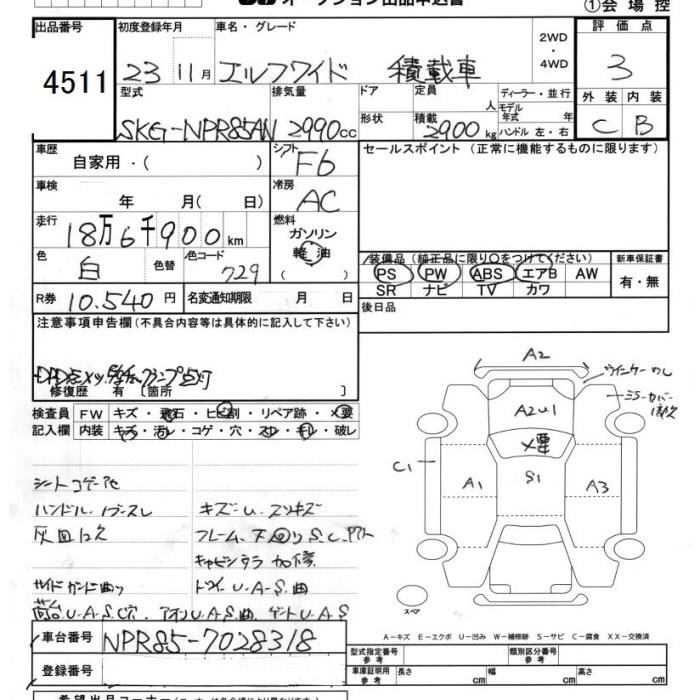 オークション出品申込書
①会場控
出品番号
4511
初度登録年月
23 11月
車名・グレード
エルフワイド 積載車
2WD
・
4WD
評価点
3
外装 内装
C B
型式
SKG-NPR85AN
排気量
2990cc
ドア
形状
定員
人
積載
2900kg
ディーラー・並行
モデル
年式 年
ハンドル 左・右
車歴
自家用・( )
シフト
F6
車検
年 月( 日)
冷房
AC
走行
18万6千900km
燃料
ガソリン
軽油
( )
色
白
色替
色コード
729
R券
10.540円
名変通知期限 月 日
セールスポイント (正常に機能するものに限ります)
装備品 (純正品に限り○をつけてください)
PS PW ABS エアB AW
SR ナビ TV カワ
新車保証書
有・無
後日品
注意事項申告欄(不具合内容等は具体的に記入して下さい)
修復歴 有 [箇所 ]
検査員
記入欄
FW キズ・飛石・ヒビ割・リペア跡・メ要
内装 キズ・汚れ・コゲ・穴・スレ・キレ・破レ
ハンドル、ノブスレ
キズ・U、スリキズ
フレーム、下回りS.C.
ドアU.A.S.曲
アオリU.A.S.曲
A2
ウインカーワレ
ミラーカバー
A2U1
メ要
C1
A1
S1
A3
スペア
A－キズ E－エクボ U－凹み W－補修跡 S－サビ C－腐食 XX－交換済
車台番号
NPR85-7028318
登録番号
型式指定番号
参考
類別区分番号
参考
車庫証明用
参考
長さ cm
幅 cm
高さ cm